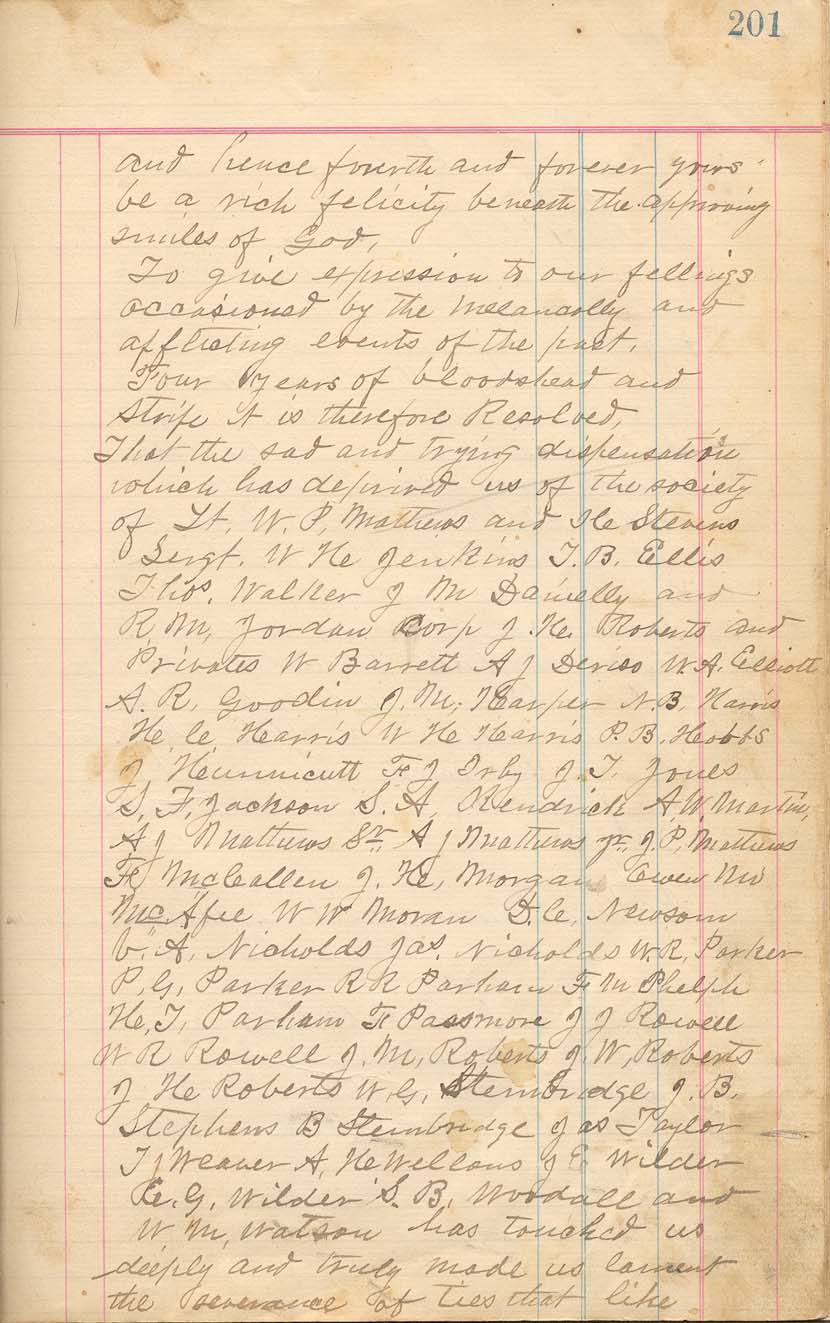 201
and hence fourth and forever yours
be a rich felicity beneath the approving
smiles of God,
To give expression to our fellings
occasioned by the melancolly and
afflicting events of the past,
Four years of bloodshead and
strife it is therefore Resolved,
That the sad and trying dispensations
which has deprived us of the society
of Lt. W. P. Mathews and He Stevens
Sergt. W He Jenkins T. B. Ellis
Thos. Walker J M Danielly and
R. M. Jordan Corp J. He. Roberts and
Privates W Barrett A J Deriso W. A. Elliott
A. R. Goodin J. M. Harper N. B. Harris
He C Harris W He Harris P. B. Hobbs
J Hunnicutt F J Irby J. T. Jones
S. F. Jackson S. A. Kendrick A. W. Martin,
A J Mathews Sr A J Mathews jr. J. P. Mathews
F McCallen J. He, Morgan Owen
McAfee W W Moran D. C. Newsom
A. Nicholds Jas. Nicholds W. R. Parker
P. G. Parker R R Parham F M Phelph
He. T. Parham F Passmore J J Rowell
W R Rowell J. M. Roberts J. W. Roberts
J He Roberts W. G. Stembridge J. B.
Stephens B Stembridge Jas Taylor
T J Weaver A. He Wellons J E Wilder
E. G. Wilder S. B. Woodall and
W M. Watson has touched us
deeply and truly made us lament
the severance of ties that like